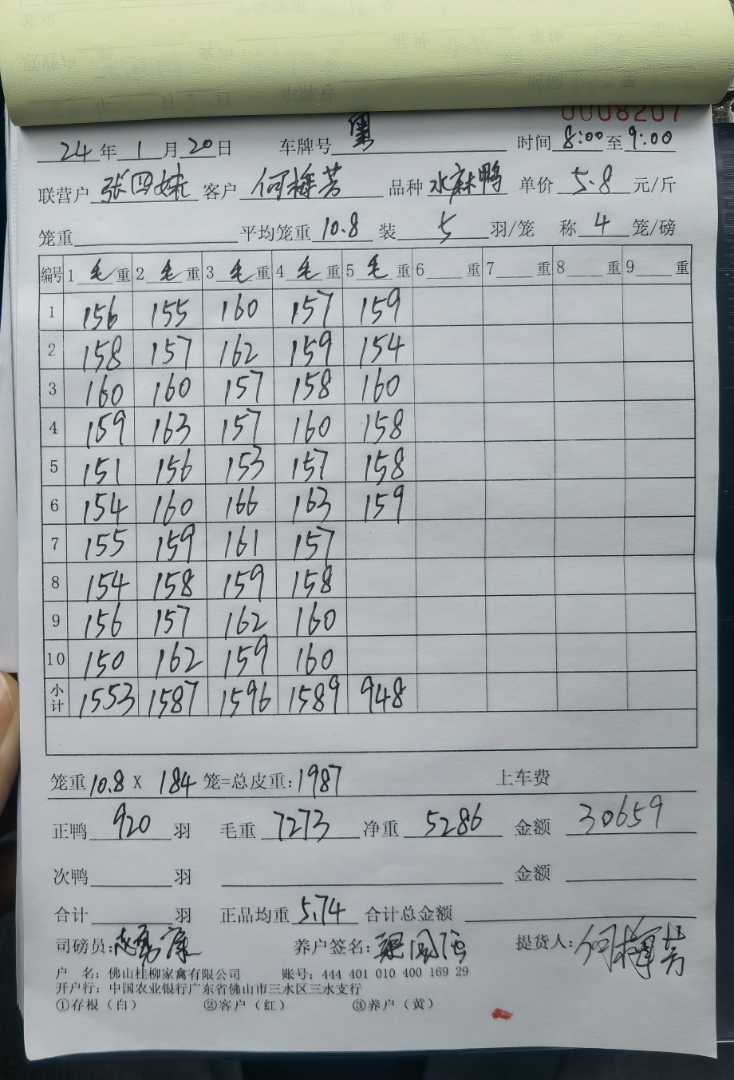 0008207
24年1月20日 车牌号 粤 时间8:00至9:00
联营户 张四妹 客户 何梅芳 品种 水麻鸭 单价 5.8 元/斤
笼重 平均笼重 10.8 装 5 羽/笼 称 4 笼/磅
编号 1 毛 重 2 毛 重 3 毛 重 4 毛 重 5 毛 重 6 重 7 重 8 重 9 重
1 156 155 160 157 159
2 158 157 162 159 154
3 160 160 157 158 160
4 159 163 157 160 158
5 151 156 153 157 158
6 154 160 166 163 159
7 155 159 161 157
8 154 158 159 158
9 156 157 162 160
10 150 162 159 160
小计 1553 1587 1596 1589 948
笼重 10.8 X 184 笼=总皮重: 1987 上车费
正鸭 920 羽 毛重 7273 净重 5286 金额 30659
次鸭 羽 金额
合计 羽 正品均重 5.74 合计总金额
司磅员: 养户签名: 提货人: 何梅芳
户 名: 佛山桂柳家禽有限公司 账号: 444 401 010 400 169 29
开户行: 中国农业银行广东省佛山市三水区三水支行
①存根(白) ②客户(红) ③养户(黄)